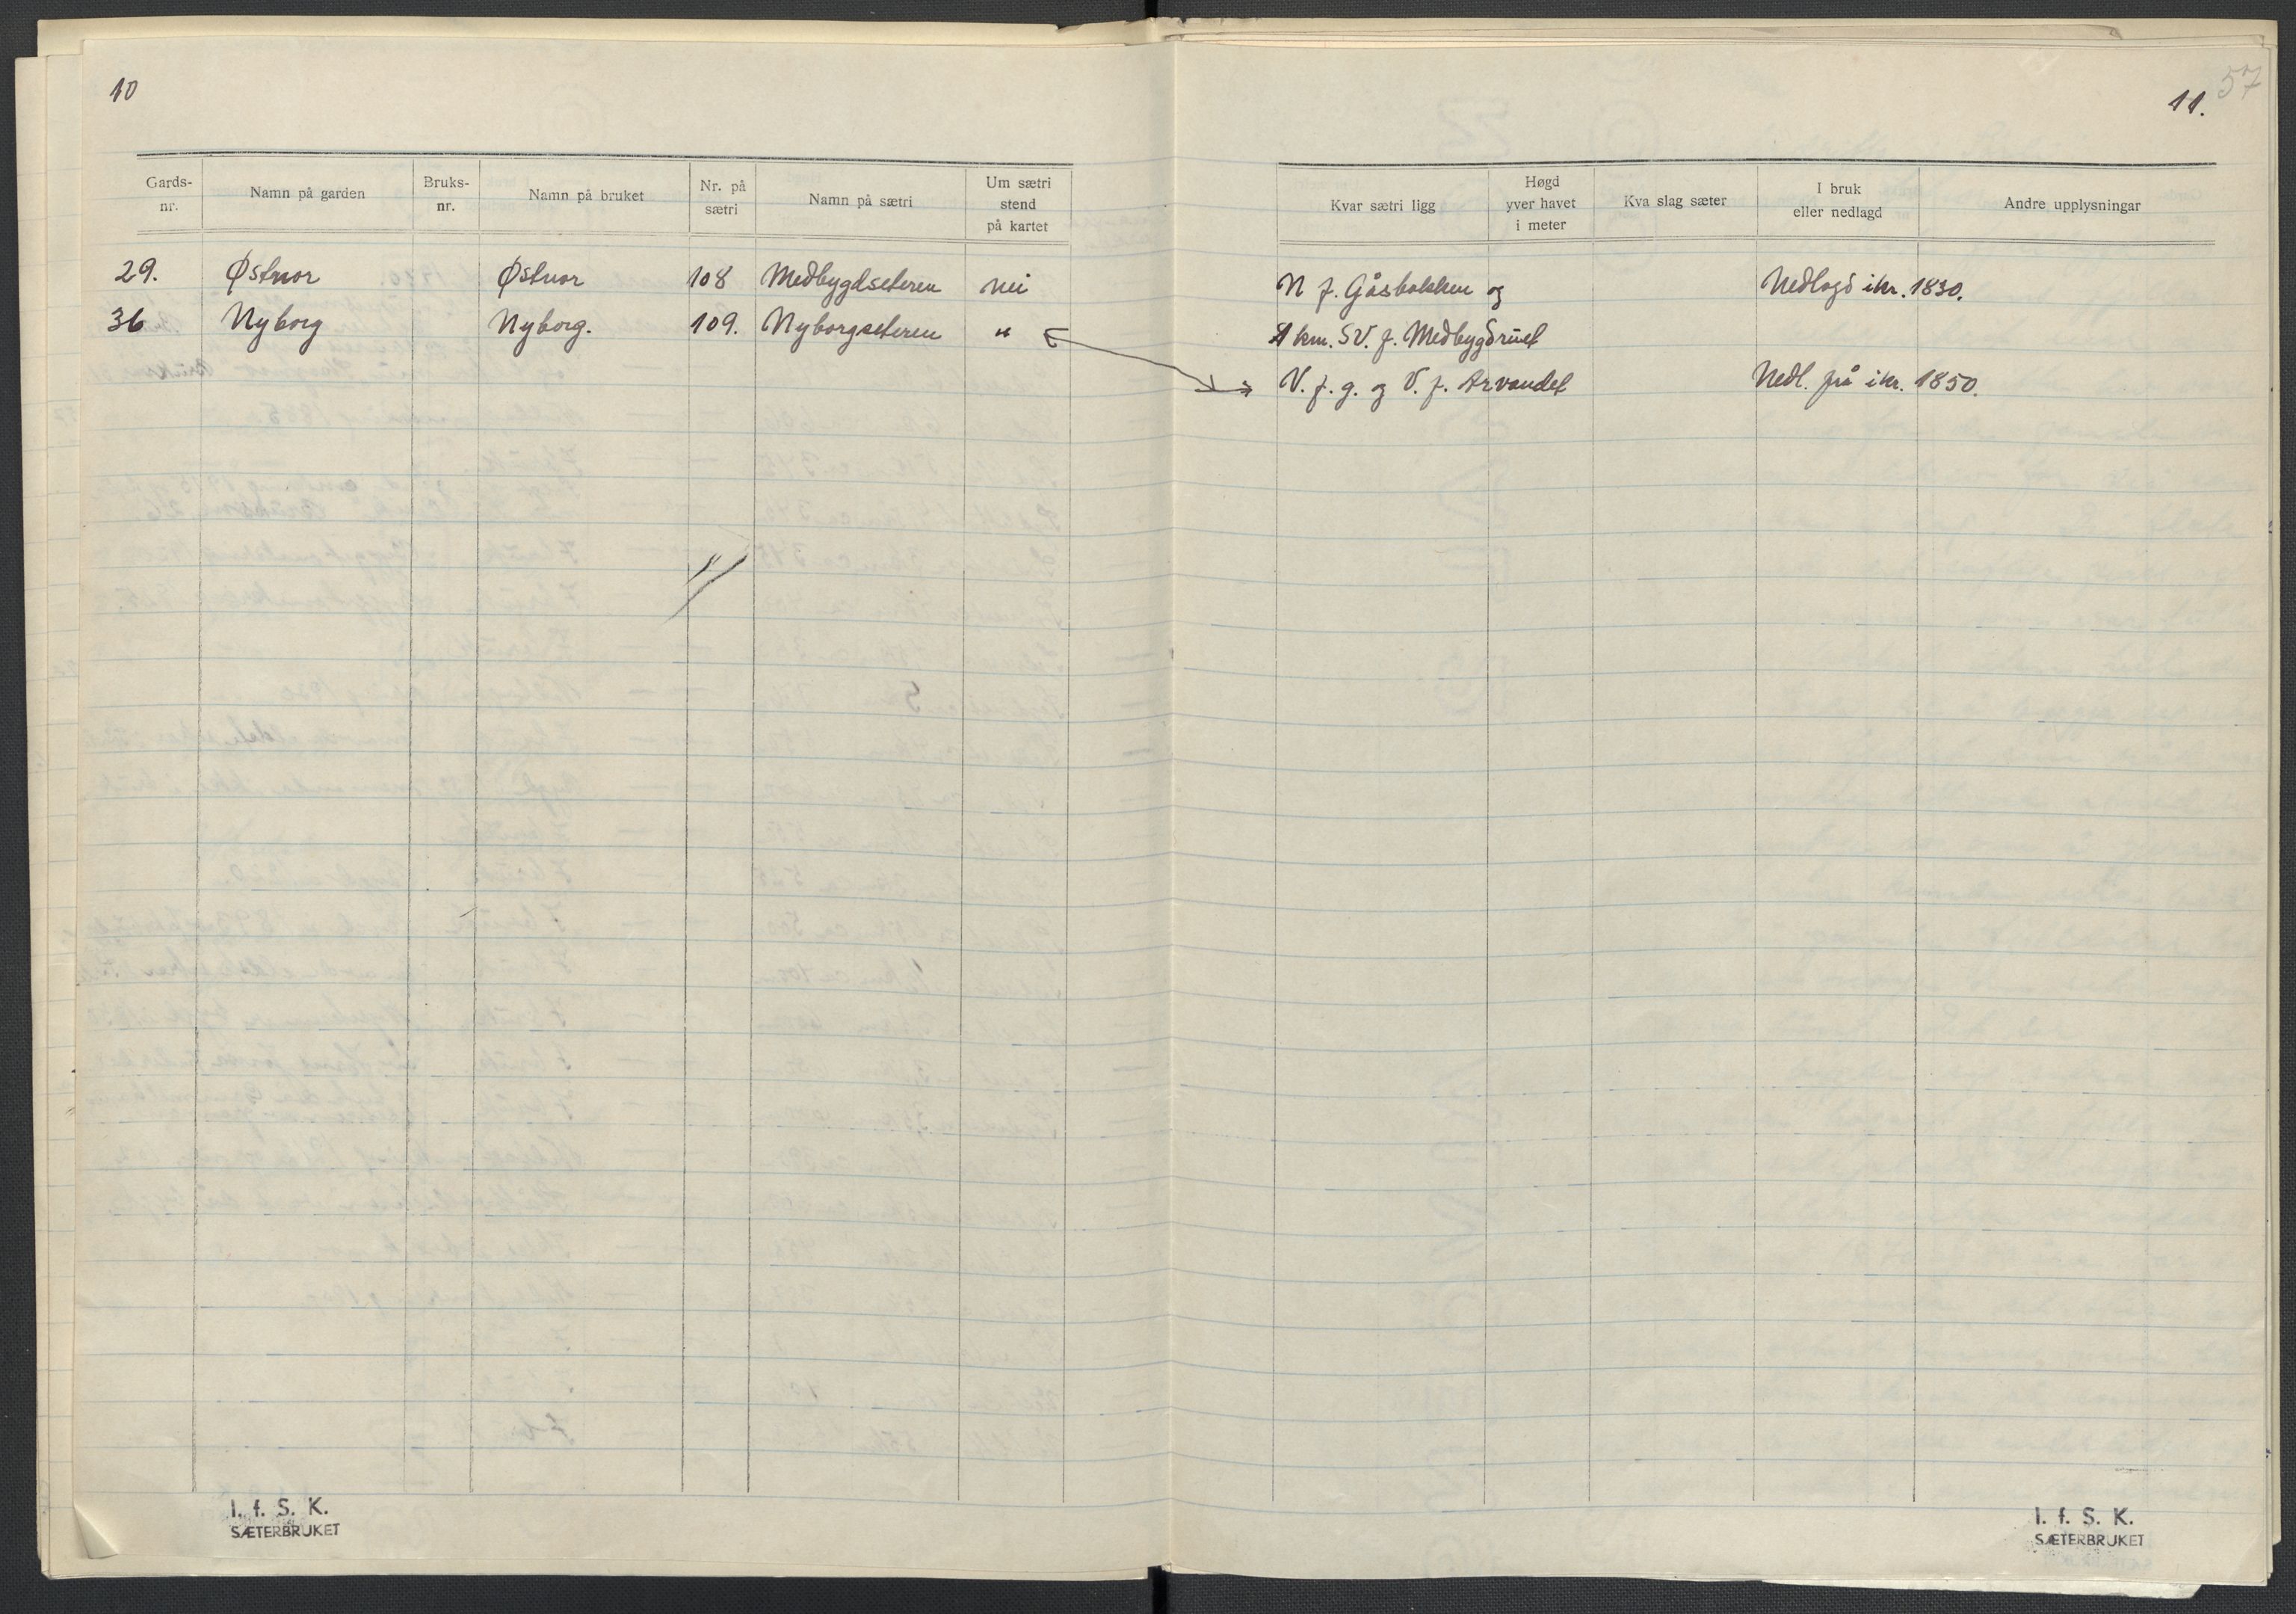 10
Gards-
nr.
Namn på garden
Bruks-
nr.
Namn på bruket
Nr. på
sætri
Namn på sætri
Um sætri
stend
på kartet
29. Østnor Østnor 108 Medbygdseteren nei
36 Nyborg Nyborg. 109. Nyborgseteren "
I. f. S. K.
SÆTERBRUKET
57
11.
Kvar sætri ligg
Høgd
yver havet
i meter
Kva slag sæter
I bruk
eller nedlagd
Andre upplysningar
N f. Gåsbakken og Nedlagd ikr. 1830.
1 km. SV. f. Medbygdruet
V. f. g. og V. f. Arvandet Nedl. frå ikr. 1850.
I. f. S. K.
SÆTERBRUKET